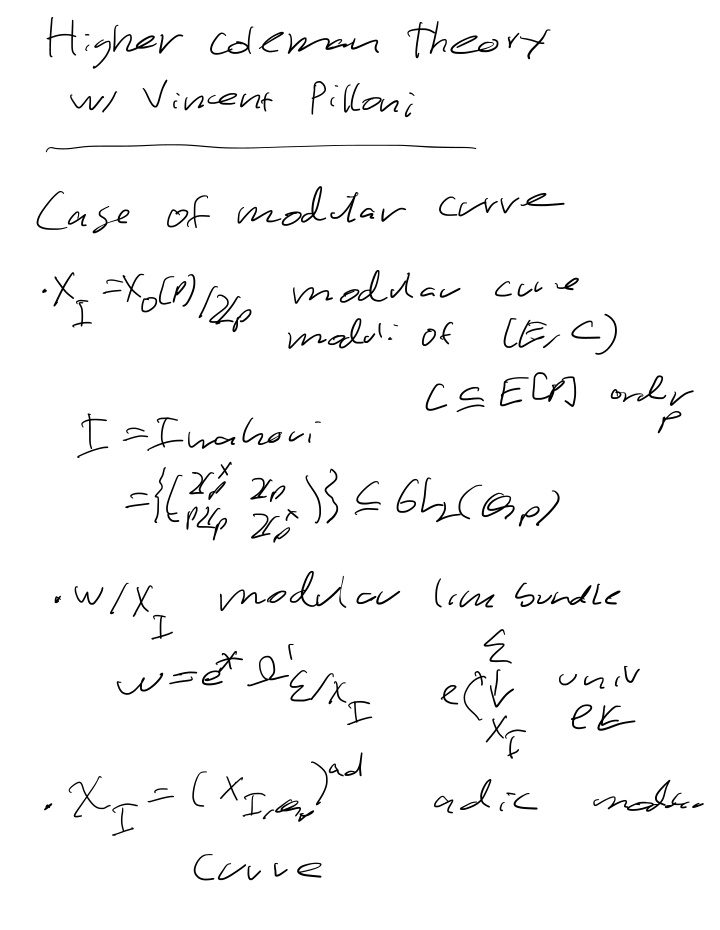 Higher Coleman theory
w/ Vincent Pilloni
Case of modular curve
· X_I = X_0(p)/ℤ_p modular curve
moduli of (E, C)
C ⊆ E[p] order p
I = Iwahori
= {(ℤ_p^× ℤ_p
pℤ_p ℤ_p^×)} ⊆ GL_2(ℚ_p)
· ω/X_I modular line bundle
ω = e^* Ω^1_{ℰ/X_I}
ℰ
e ↓ univ
X_I EC
· 𝒳_I = (X_{I,ℚ_p})^{ad} adic modular
curve